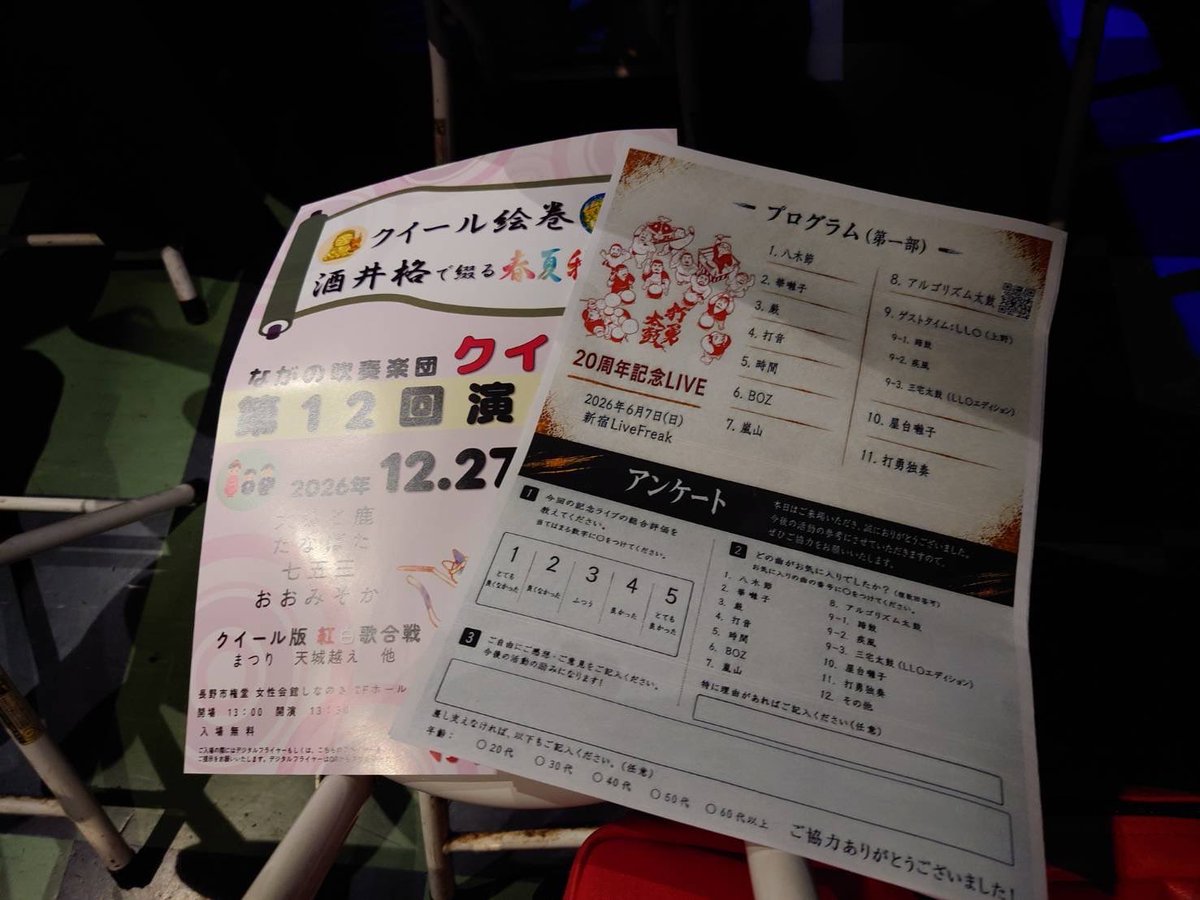 クイール絵巻
酒井格で綴る春夏
ながの吹奏楽団 クイ
第12回演
2026年 12.27
鹿
たなばた
七五三
おおみそか
クイール版 紅白歌合戦
まつり 天城越え 他
長野市権堂 女性会館しなのき
開場 13:00 開演 13:30
入場無料
ご入場の際にはデジタルフライヤーもしくは、こちらの
ご提示をお願いいたします。デジタルフライヤーは
プログラム(第一部)
打勇太鼓
20周年記念LIVE
2026年6月7日(日)
新宿LiveFreak
1. 八木節
2. 華囃子
3. 厳
4. 打音
5. 時間
6. BOZ
7. 嵐山
8. アルゴリズム太鼓
9. ゲストタイム:LLO(上野)
9-2. 疾風
9-3. 三宅太鼓(LLOエディション)
10. 屋台囃子
11. 打勇独奏
アンケート
本日はご来場いただき、誠にありがとうございました。
今後の活動の参考にさせていただきますので、
ぜひご協力をお願いいたします。
1 今回の記念ライブの総合評価を
教えてください。
当てはまる数字に○をつけてください。
1 2 3 4 5
とても良くなかった 良くなかった ふつう 良かった とても良かった
2 どの曲がお気に入りでしたか?(複数回答可)
お気に入りの曲の番号に○をつけてください。
1. 八木節
2. 華囃子
3. 厳
4. 打音
5. 時間
6. BOZ
7. 嵐山
8. アルゴリズム太鼓
9-2. 疾風
9-3. 三宅太鼓(LLOエディション)
10. 屋台囃子
11. 打勇独奏
12. その他
特に理由があればご記入ください(任意)
3 ご自由にご感想・ご意見をご記入ください。
今後の活動の励みになります!
差し支えなければ、以下もご記入ください。(任意)
年齢: ○20代 ○30代 ○40代 ○50代 ○60代以上
ご協力ありがとうございました!